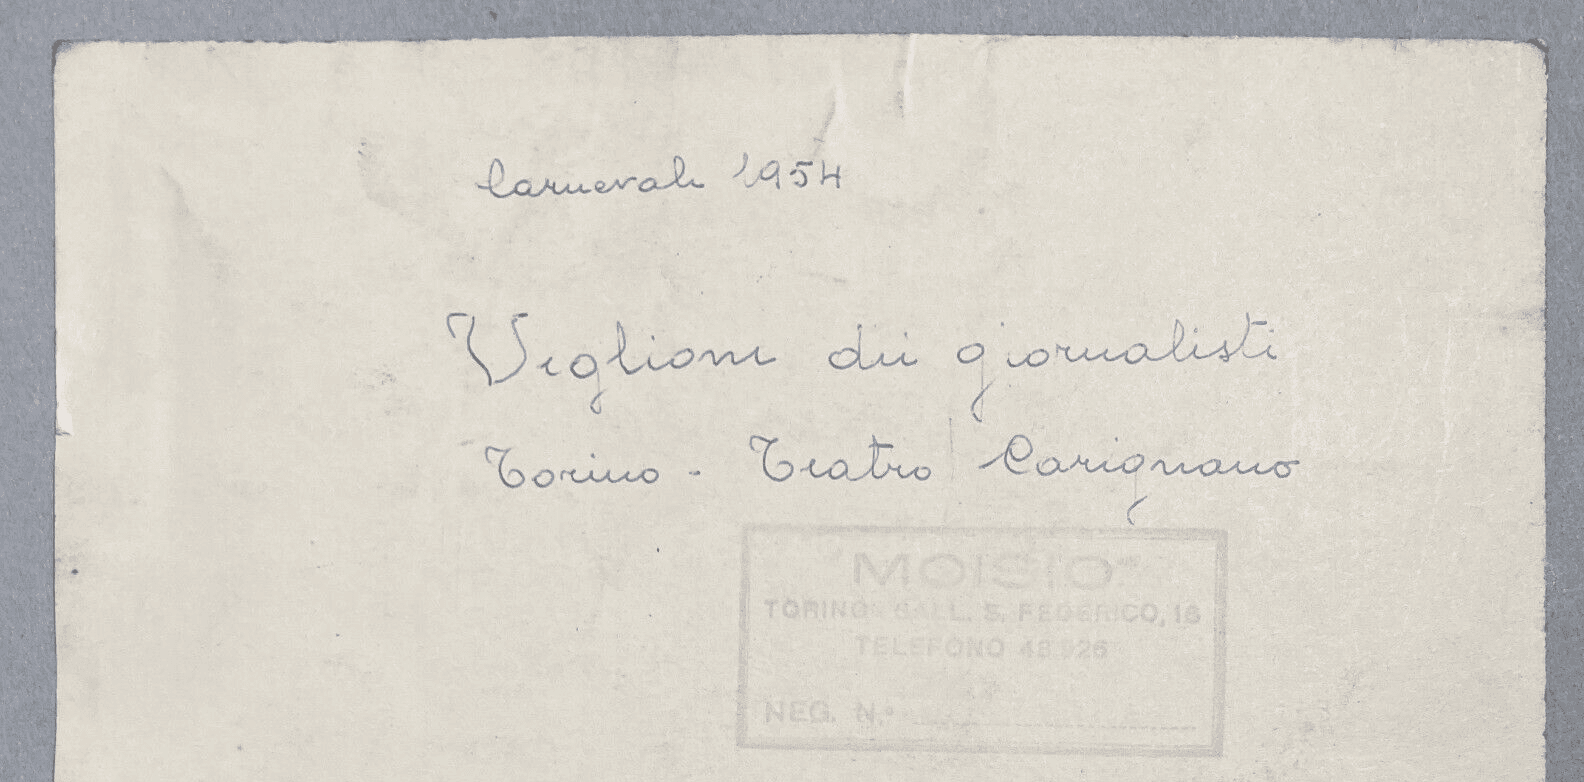 Carnevale 1954
Veglione dei giornalisti
Torino - Teatro Carignano
MOISIO
TORINO - GALL. S. FEDERICO, 16
TELEFONO 48.926
NEG. N.°